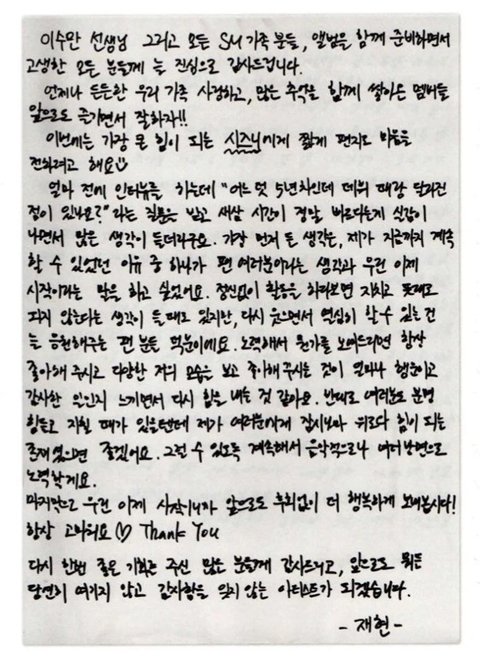 이수만 선생님 그리고 모든 SM 가족 분들, 앨범을 함께 준비하면서
고생한 모든 분들께 늘 진심으로 감사드립니다.
언제나 든든한 우리 가족 사랑하고, 많은 추억을 함께 쌓아온 멤버들
앞으로도 즐기면서 잘하자!!
이번에는 가장 큰 힘이 되는 시즈니에게 짧게 편지로 마음을
전하려고 해요
얼마 전에 인터뷰를 하는데 "어느 덧 5년차인데 데뷔 때랑 달라진
점이 있나요?" 라는 질문을 받고 새삼 시간이 정말 빠르다는게 실감이
나면서 많은 생각이 들더라구요. 가장 먼저 든 생각은, 제가 지금까지 계속
할 수 있었던 이유 중 하나가 팬 여러분이라는 생각과 우린 이제
시작이라는 말을 하고 싶었어요. 정신없이 활동을 하다보면 지치고 뜻대로
되지 않는다는 생각이 들 때도 있지만, 다시 웃으면서 열심히 할 수 있는 건
늘 응원해주는 팬 분들 덕분이에요. 노력해서 뭔가를 보여드리면 항상
좋아해 주시고 다양한 저의 모습을 보고 좋아해주시는 것이 얼마나 행운이고
감사한 일인지 느끼면서 다시 힘을 내는 것 같아요. 반대로 여러분도 분명
힘들고 지칠 때가 있을텐데 제가 여러분에게 잠시나마 위로와 힘이 되는
존재였으면 좋겠어요. 그럴 수 있도록 계속해서 음악적으로나 여러방면으로
노력할게요.
마지막으로 우린 이제 시작이니까 앞으로도 후회없이 더 행복하게 보내봅시다!
항상 고마워요 ♡ Thank You
다시 한번 좋은 기회를 주신 많은 분들께 감사드리고, 앞으로도 뭐든
당연히 여기지 않고 감사함을 잊지 않는 아티스트가 되겠습니다.
- 재현 -